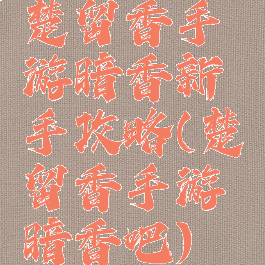 楚留香手
游暗香新
手攻略(楚
留香手游
暗香吧)